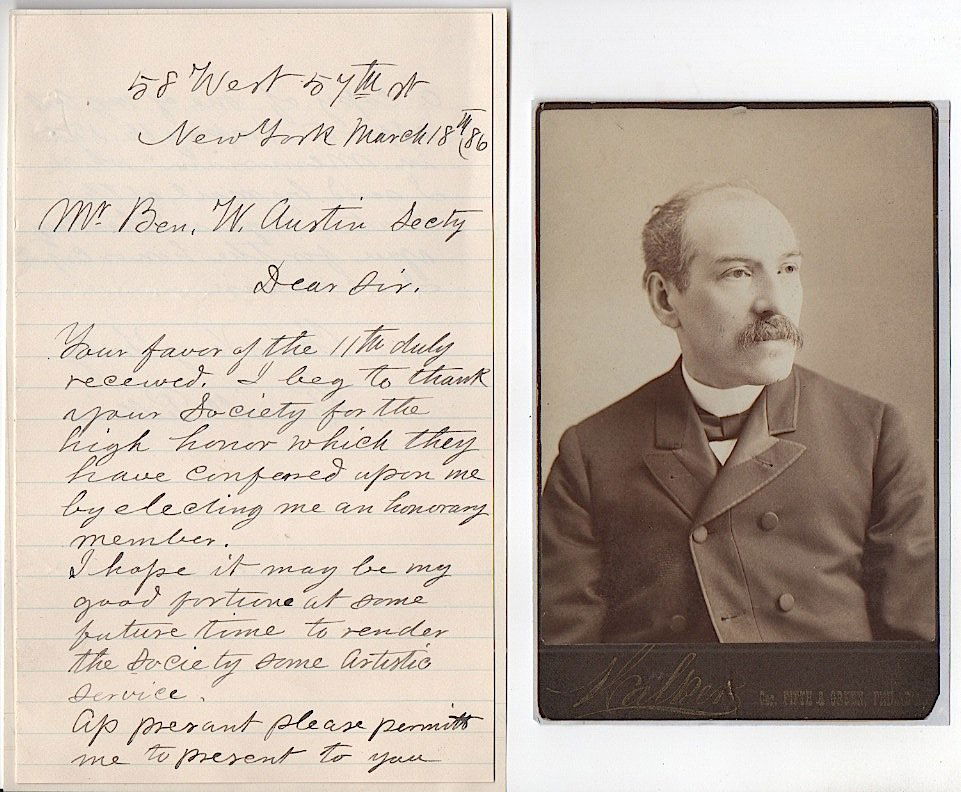 58 West 57th st
New York March 18th /86
Mr Ben. W. Austin Secty
Dear Sir.
Your favor of the 11th duly
received. I beg to thank
your Society for the
high honor which they
have conferred upon me
by electing me an honorary
member.
I hope it may be my
good fortune at some
future time to render
the Society some Artistic
service.
At presant please permitt
me to present to you
Cor. Fifth & Green, Phila